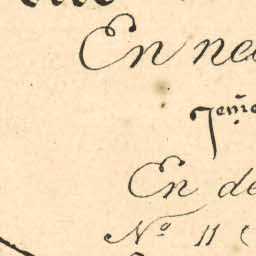 En ne
7em̃e
En de
Nº 11 (